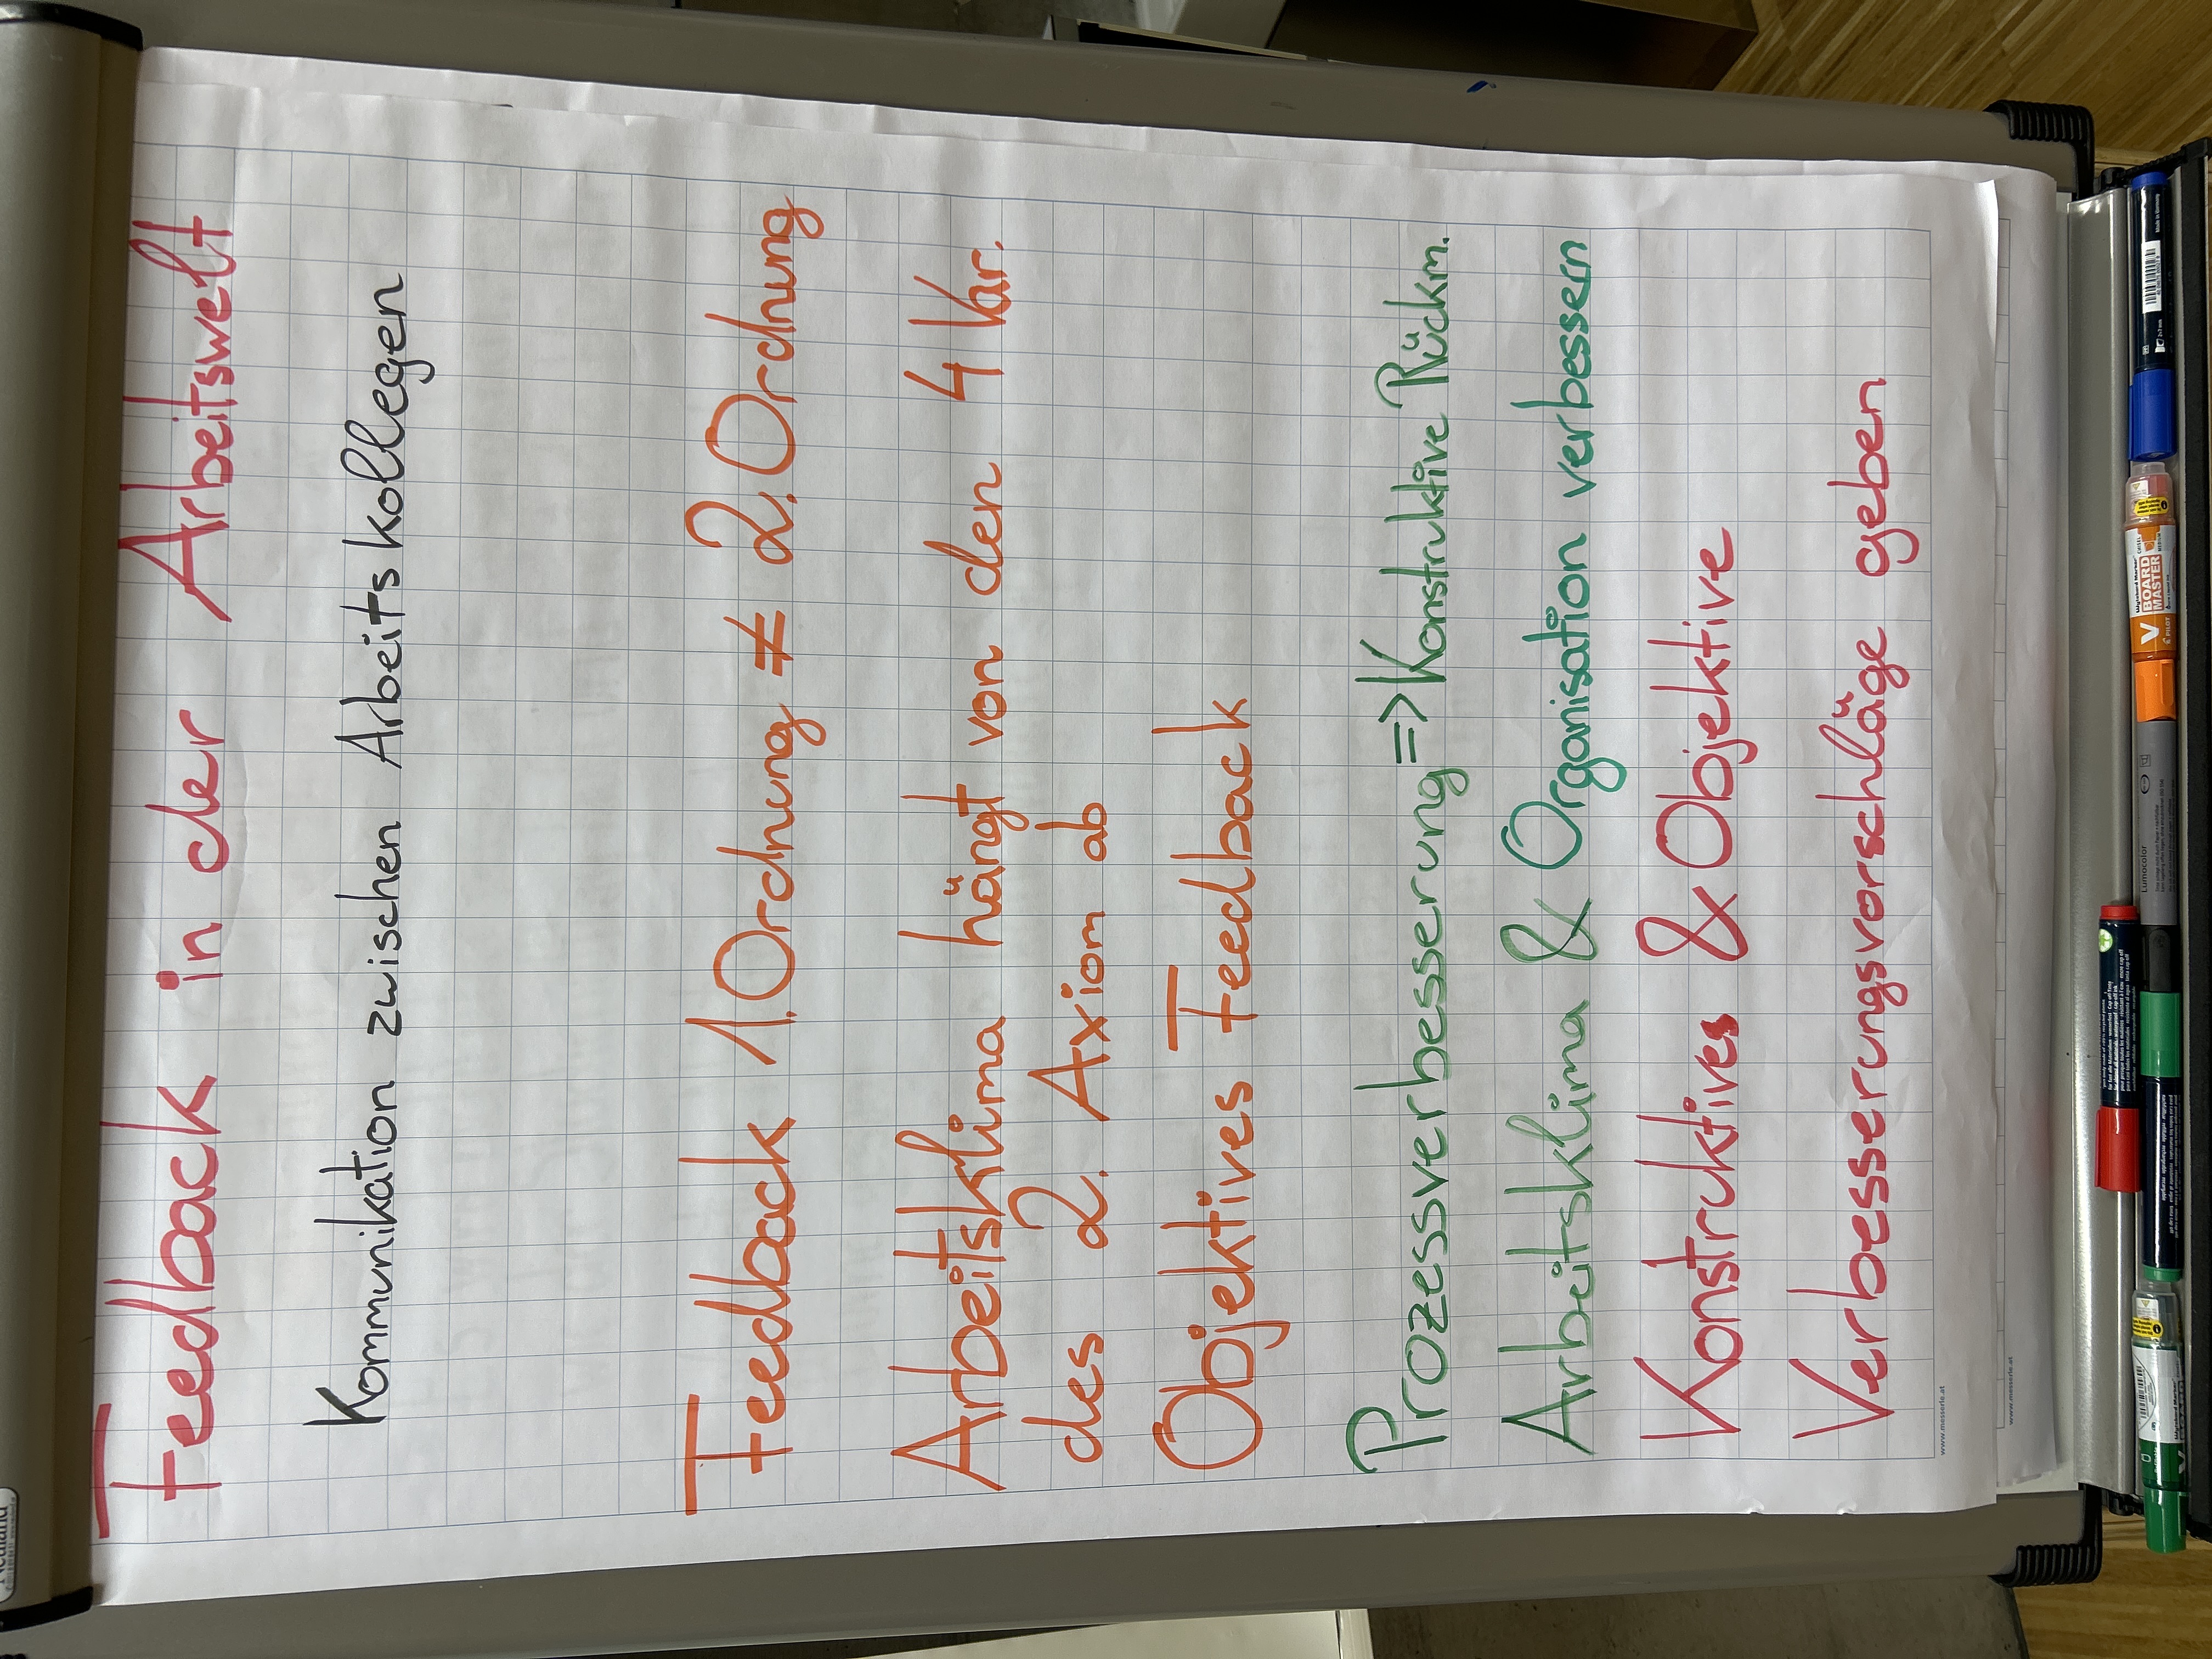 Feedback in der Arbeitswelt
Kommunikation zwischen Arbeitskollegen
Feedback 1. Ordnung ≠ 2. Ordnung
Arbeitsklima hängt von den 4 Var.
des 2. Axiom ab
Objektives Feedback
Prozessverbesserung => Konstruktive Rückm.
Arbeitsklima & Organisation verbessern
Konstruktives & Objektive
Verbesserungsvorschläge geben
www.messerle.at
www.messerle.at
V BOARD MASTER
PILOT
Lumocolor